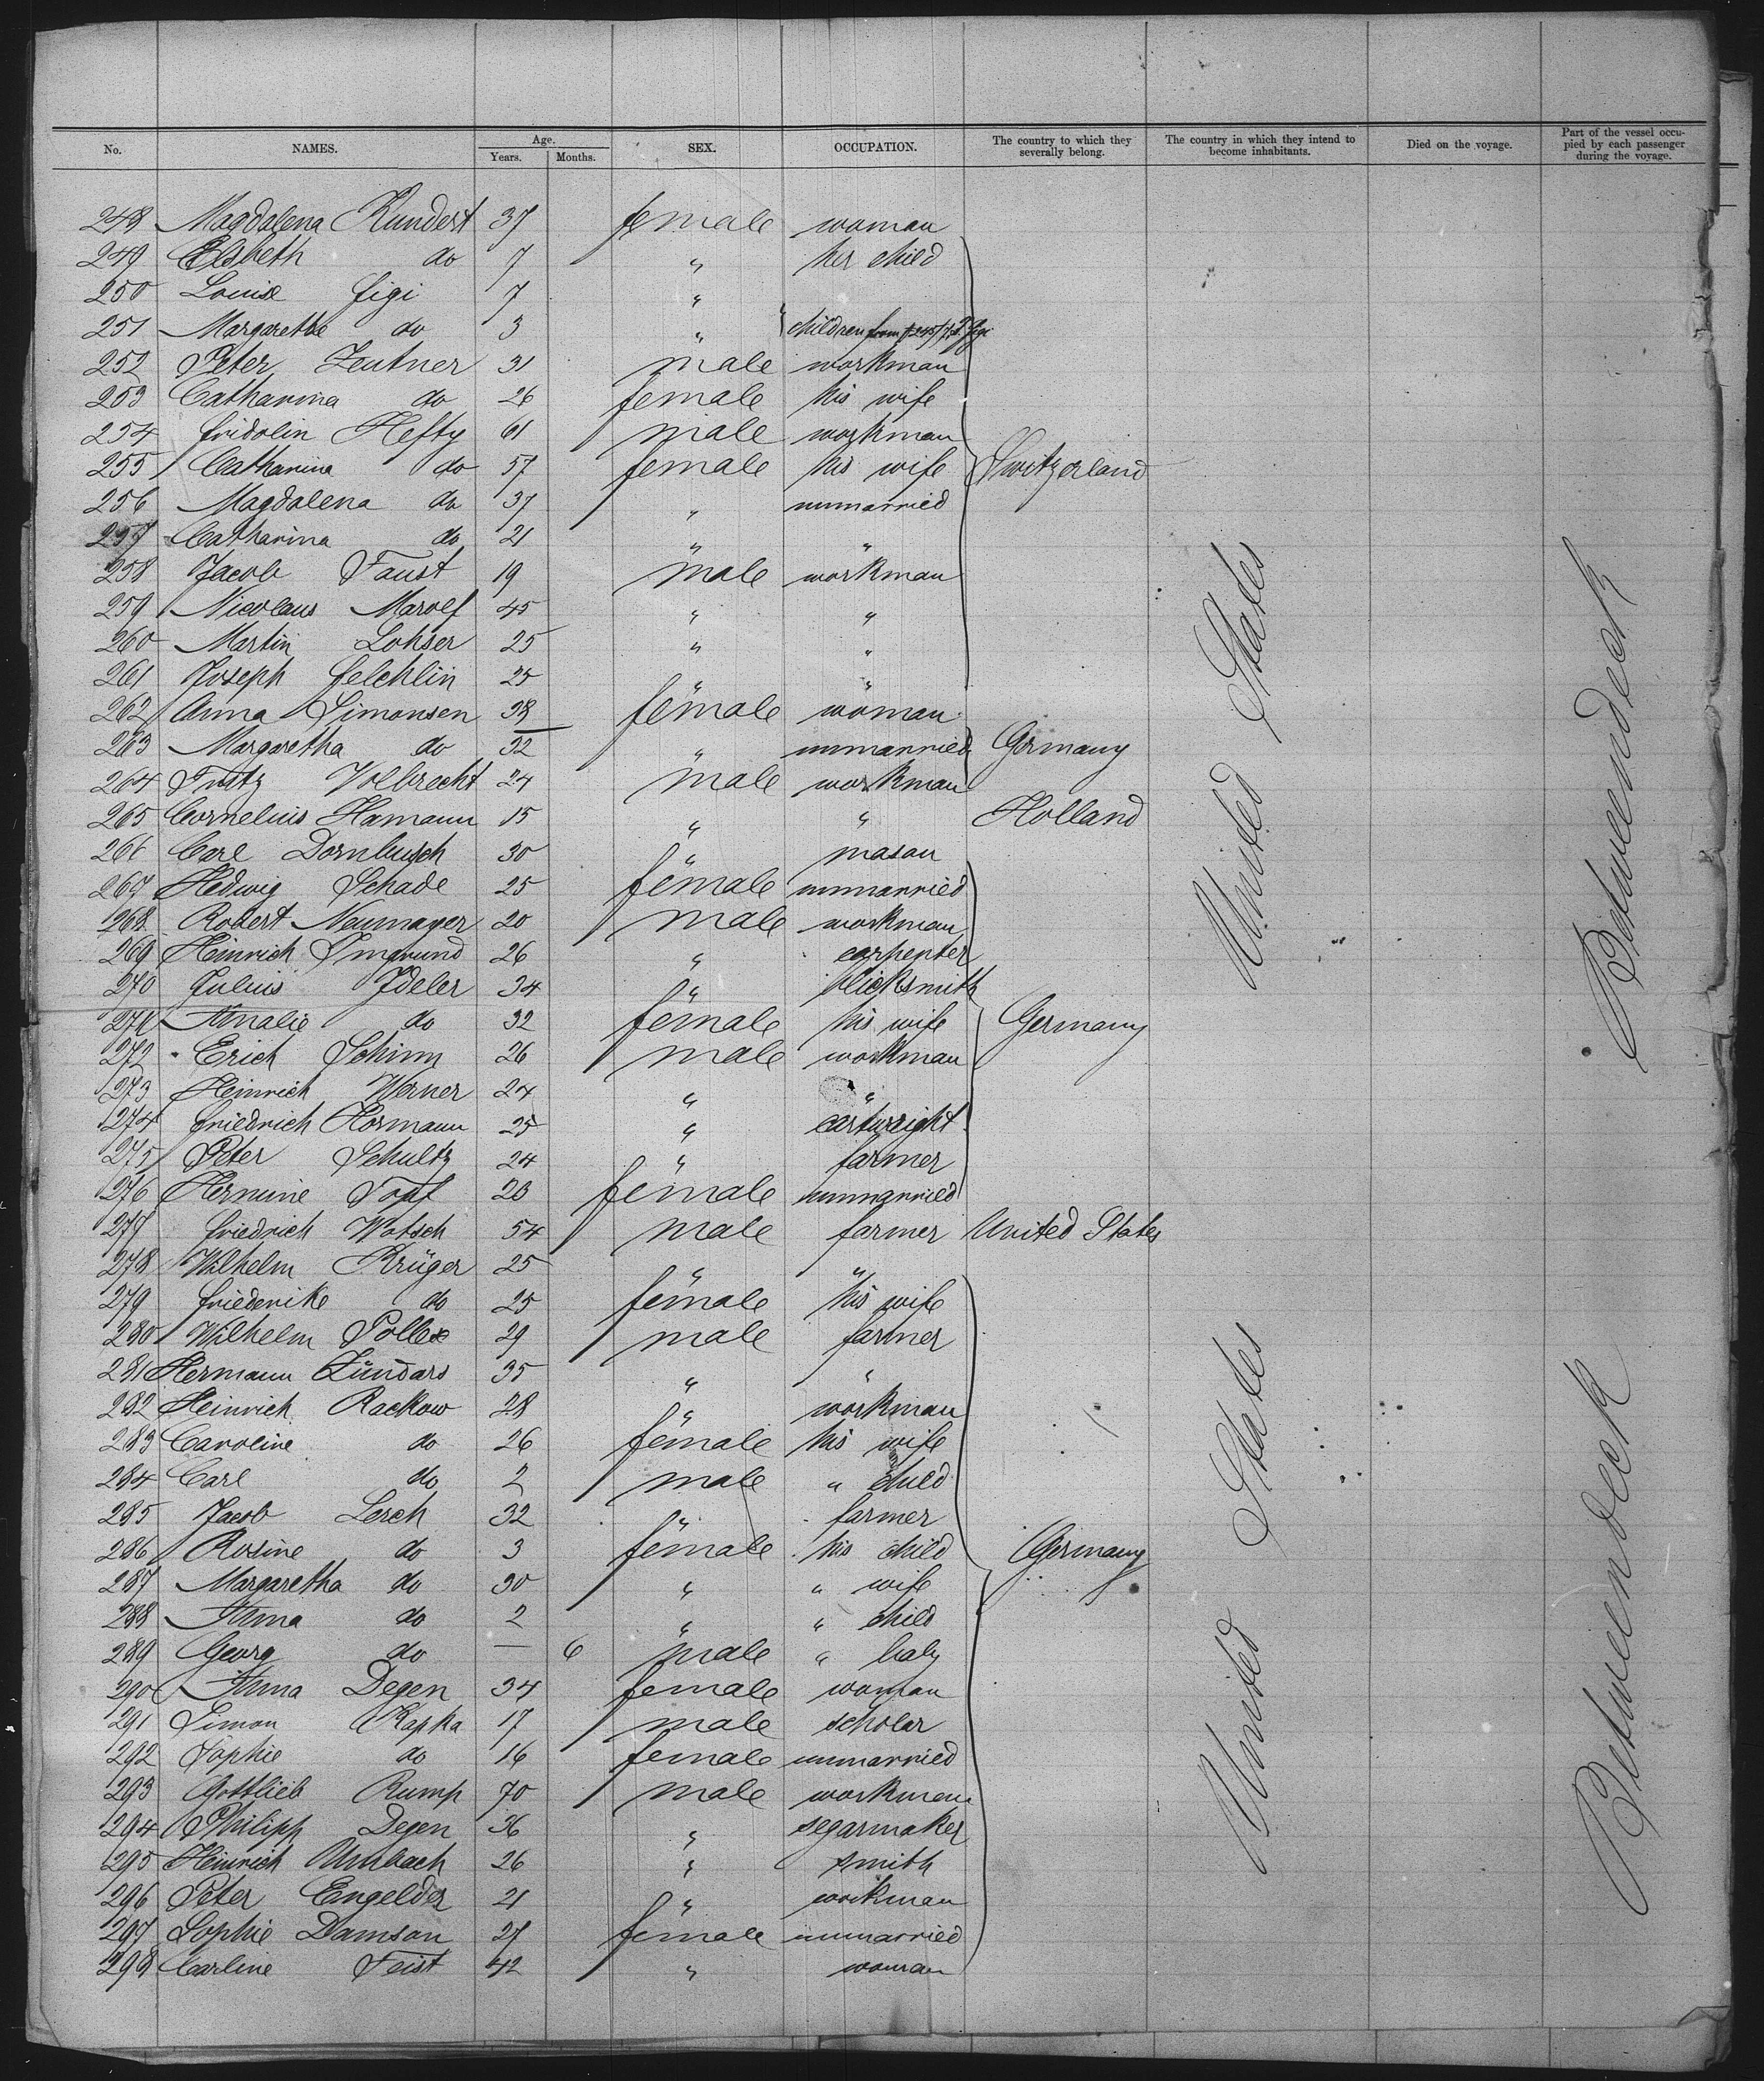 No. NAMES. Age. Years. Months. SEX. OCCUPATION. The country to which they severally belong. The country in which they intend to become inhabitants. Died on the voyage. Part of the vessel occupied by each passenger during the voyage.
248 Magdalena Kundert 37 female woman
249 Elsbeth do 7 " her child
250 Louise Figi 7 "
251 Margarethe do 3 " children from
252 Peter Zentner 31 male workman
253 Catharina do 26 female his wife
254 Fridolin Hefty 61 male workman
255 Catharina do 57 female his wife Switzerland
256 Magdalena do 37 " unmarried
257 Catharina do 21 " "
258 Jacob Faust 19 male workman
259 Nicolaus Marolf 45 " "
260 Martin Lohser 25 " "
261 Joseph Felchlin 25 " "
262 Anna Simonsen 38 female woman
263 Margaretha do 32 " unmarried Germany
264 Fritz Volbrecht 24 male workman
265 Cornelius Hamann 15 " " Holland
266 Carl Dornbusch 30 " mason
267 Hedwig Schade 25 female unmarried
268 Robert Neumayer 20 male workman
269 Heinrich Imgrund 26 " carpenter
270 Julius Ideler 34 " blicksmith
271 Amalie do 32 female his wife Germany
272 Erich Schim 26 male workman
273 Heinrich Werner 24 " "
274 Friedrich Hormann 25 " cartwright
275 Peter Schultz 24 " farmer
276 Hermine Topf 20 female unmarried
277 Friedrich Wotsch 54 male farmer United States
278 Wilhelm Krüger 25 " "
279 Friederike do 25 female his wife
280 Wilhelm Pollex 29 male farmer
281 Hermann Zündars 35 " "
282 Heinrich Rackow 28 " workman
283 Caroline do 26 female his wife
284 Carl do 2 male " child
285 Jacob Lerch 32 " farmer
286 Rosine do 3 female his child Germany
287 Margaretha do 30 " " wife
288 Anna do 2 " " child
289 Georg do — 6 male " baby
290 Anna Degen 34 female woman
291 Simon Kapka 17 male scholar
292 Sophie do 16 female unmarried
293 Gottlieb Rump 70 male workman
294 Philipp Degen 36 " segarmaker
295 Heinrich Umbach 26 " smith
296 Peter Engelder 21 " workman
297 Sophie Damson 27 female unmarried
298 Carline Feist 42 " woman
United States
United States
Betweendeck
Betweendeck